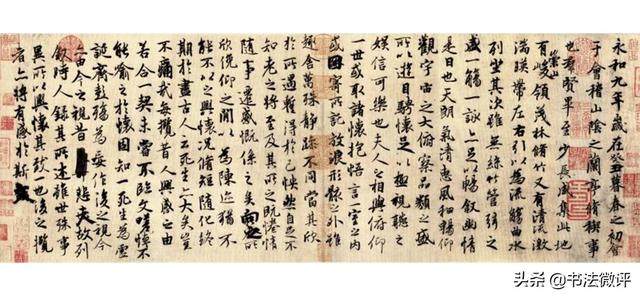 永和九年歲在癸丑暮春之初會
于會稽山陰之蘭亭脩稧事
也羣賢畢至少長咸集此地
有崇山峻領茂林脩竹又有清流激
湍暎帶左右引以為流觴曲水
列坐其次雖無絲竹管弦之
盛一觴一詠亦足以暢敘幽情
是日也天朗氣清惠風和暢仰
觀宇宙之大俯察品類之盛
所以遊目騁懷足以極視聽之
娛信可樂也夫人之相與俯仰
一世或取諸懷抱悟言一室之內
或因寄所託放浪形骸之外雖
趣舍萬殊靜躁不同當其欣
於所遇蹔得於己怏然自足不
知老之將至及其所之既惓情
隨事遷感慨係之矣向之所
欣俛仰之閒以為陳迹猶不
能不以之興懷況脩短隨化終
期於盡古人云死生亦大矣豈
不痛哉每攬昔人興感之由
若合一契未嘗不臨文嗟悼不
能喻之於懷固知一死生為虛
誕齊彭殤為妄作後之視今
亦由今之視昔悲夫故列
敘時人錄其所述雖世殊事
異所以興懷其致一也後之攬
者亦將有感於斯文
头条 @书法微评